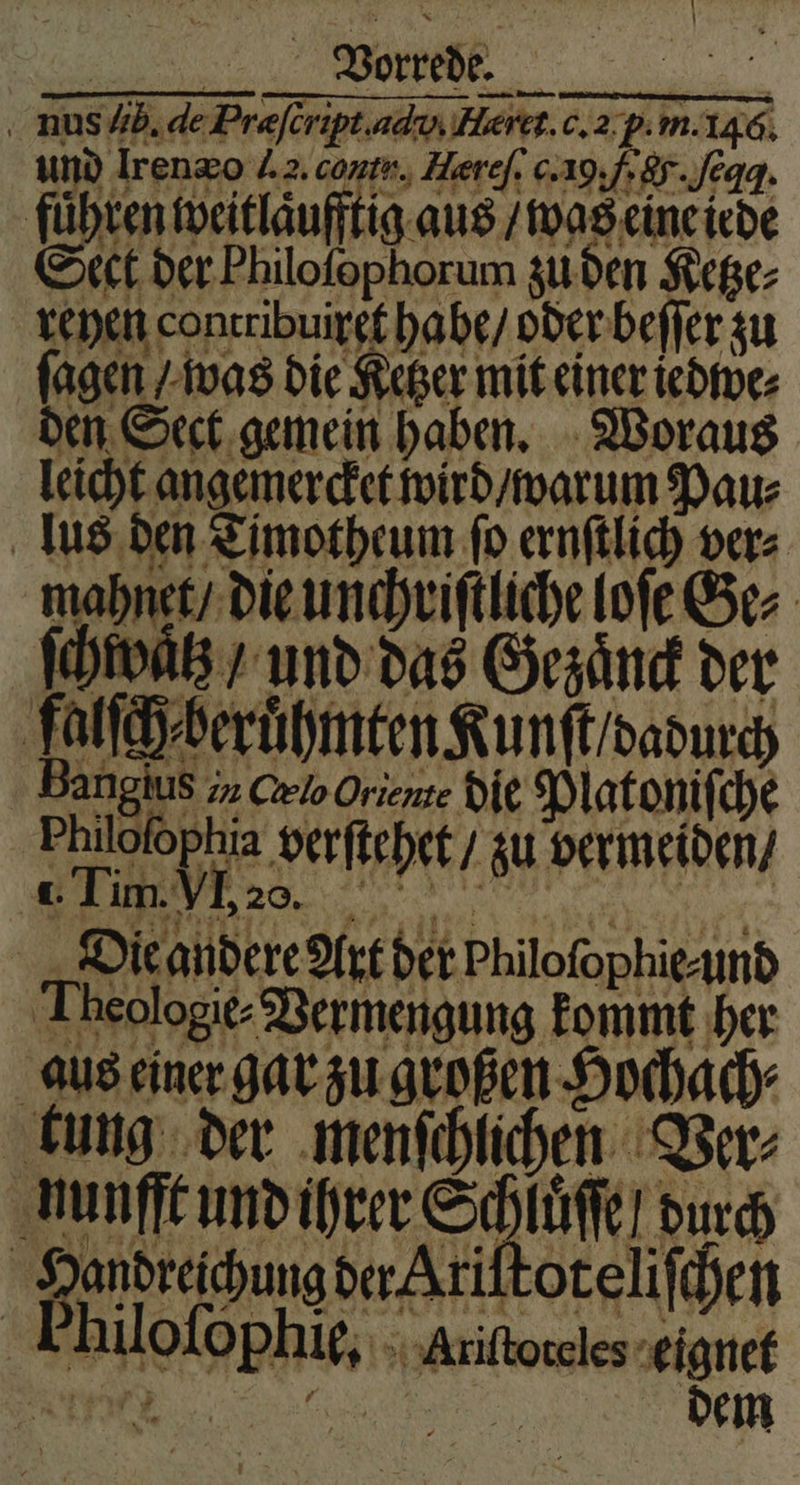 Vorrede.
nus lib. de Præſcript. adv. Hæret. c. 2. p. m. 146.
und Irenæo l. 2. contr. Hæreſ. c. 19. f. 85. ſeqq.
fuͤhren weitlaͤufftig aus / was eine iede
Sect der Philoſophorum zu den Ketze⸗
reyen contribuiret habe / oder beſſer zu
ſagen / was die Ketzer mit einer iedwe⸗
den Sect gemein haben. Woraus
leicht angemercket wird / warum Pau⸗
lus den Timotheum ſo ernſtlich ver⸗
mahnet / die unchriſtliche loſe Ge⸗
ſchwaͤtz / und das Gezaͤnck der
falſch⸗beruͤhmten Kunſt / dadurch
Bangius in Cœlo Oriente die Platoniſche
Philoſophia verſtehet / zu vermeiden /
1. Tim. VI, 20.
Die andere Art der Philoſophie⸗und
Theologie⸗Vermengung kommt her
aus einer gar zu großen Hochach⸗
tung der menſchlichen Ver⸗
nunfft und ihrer Schluͤſſe / durch
Handreichung der Ariſtoteliſchen
Philoſophie. Ariſtoteles eignet
dem